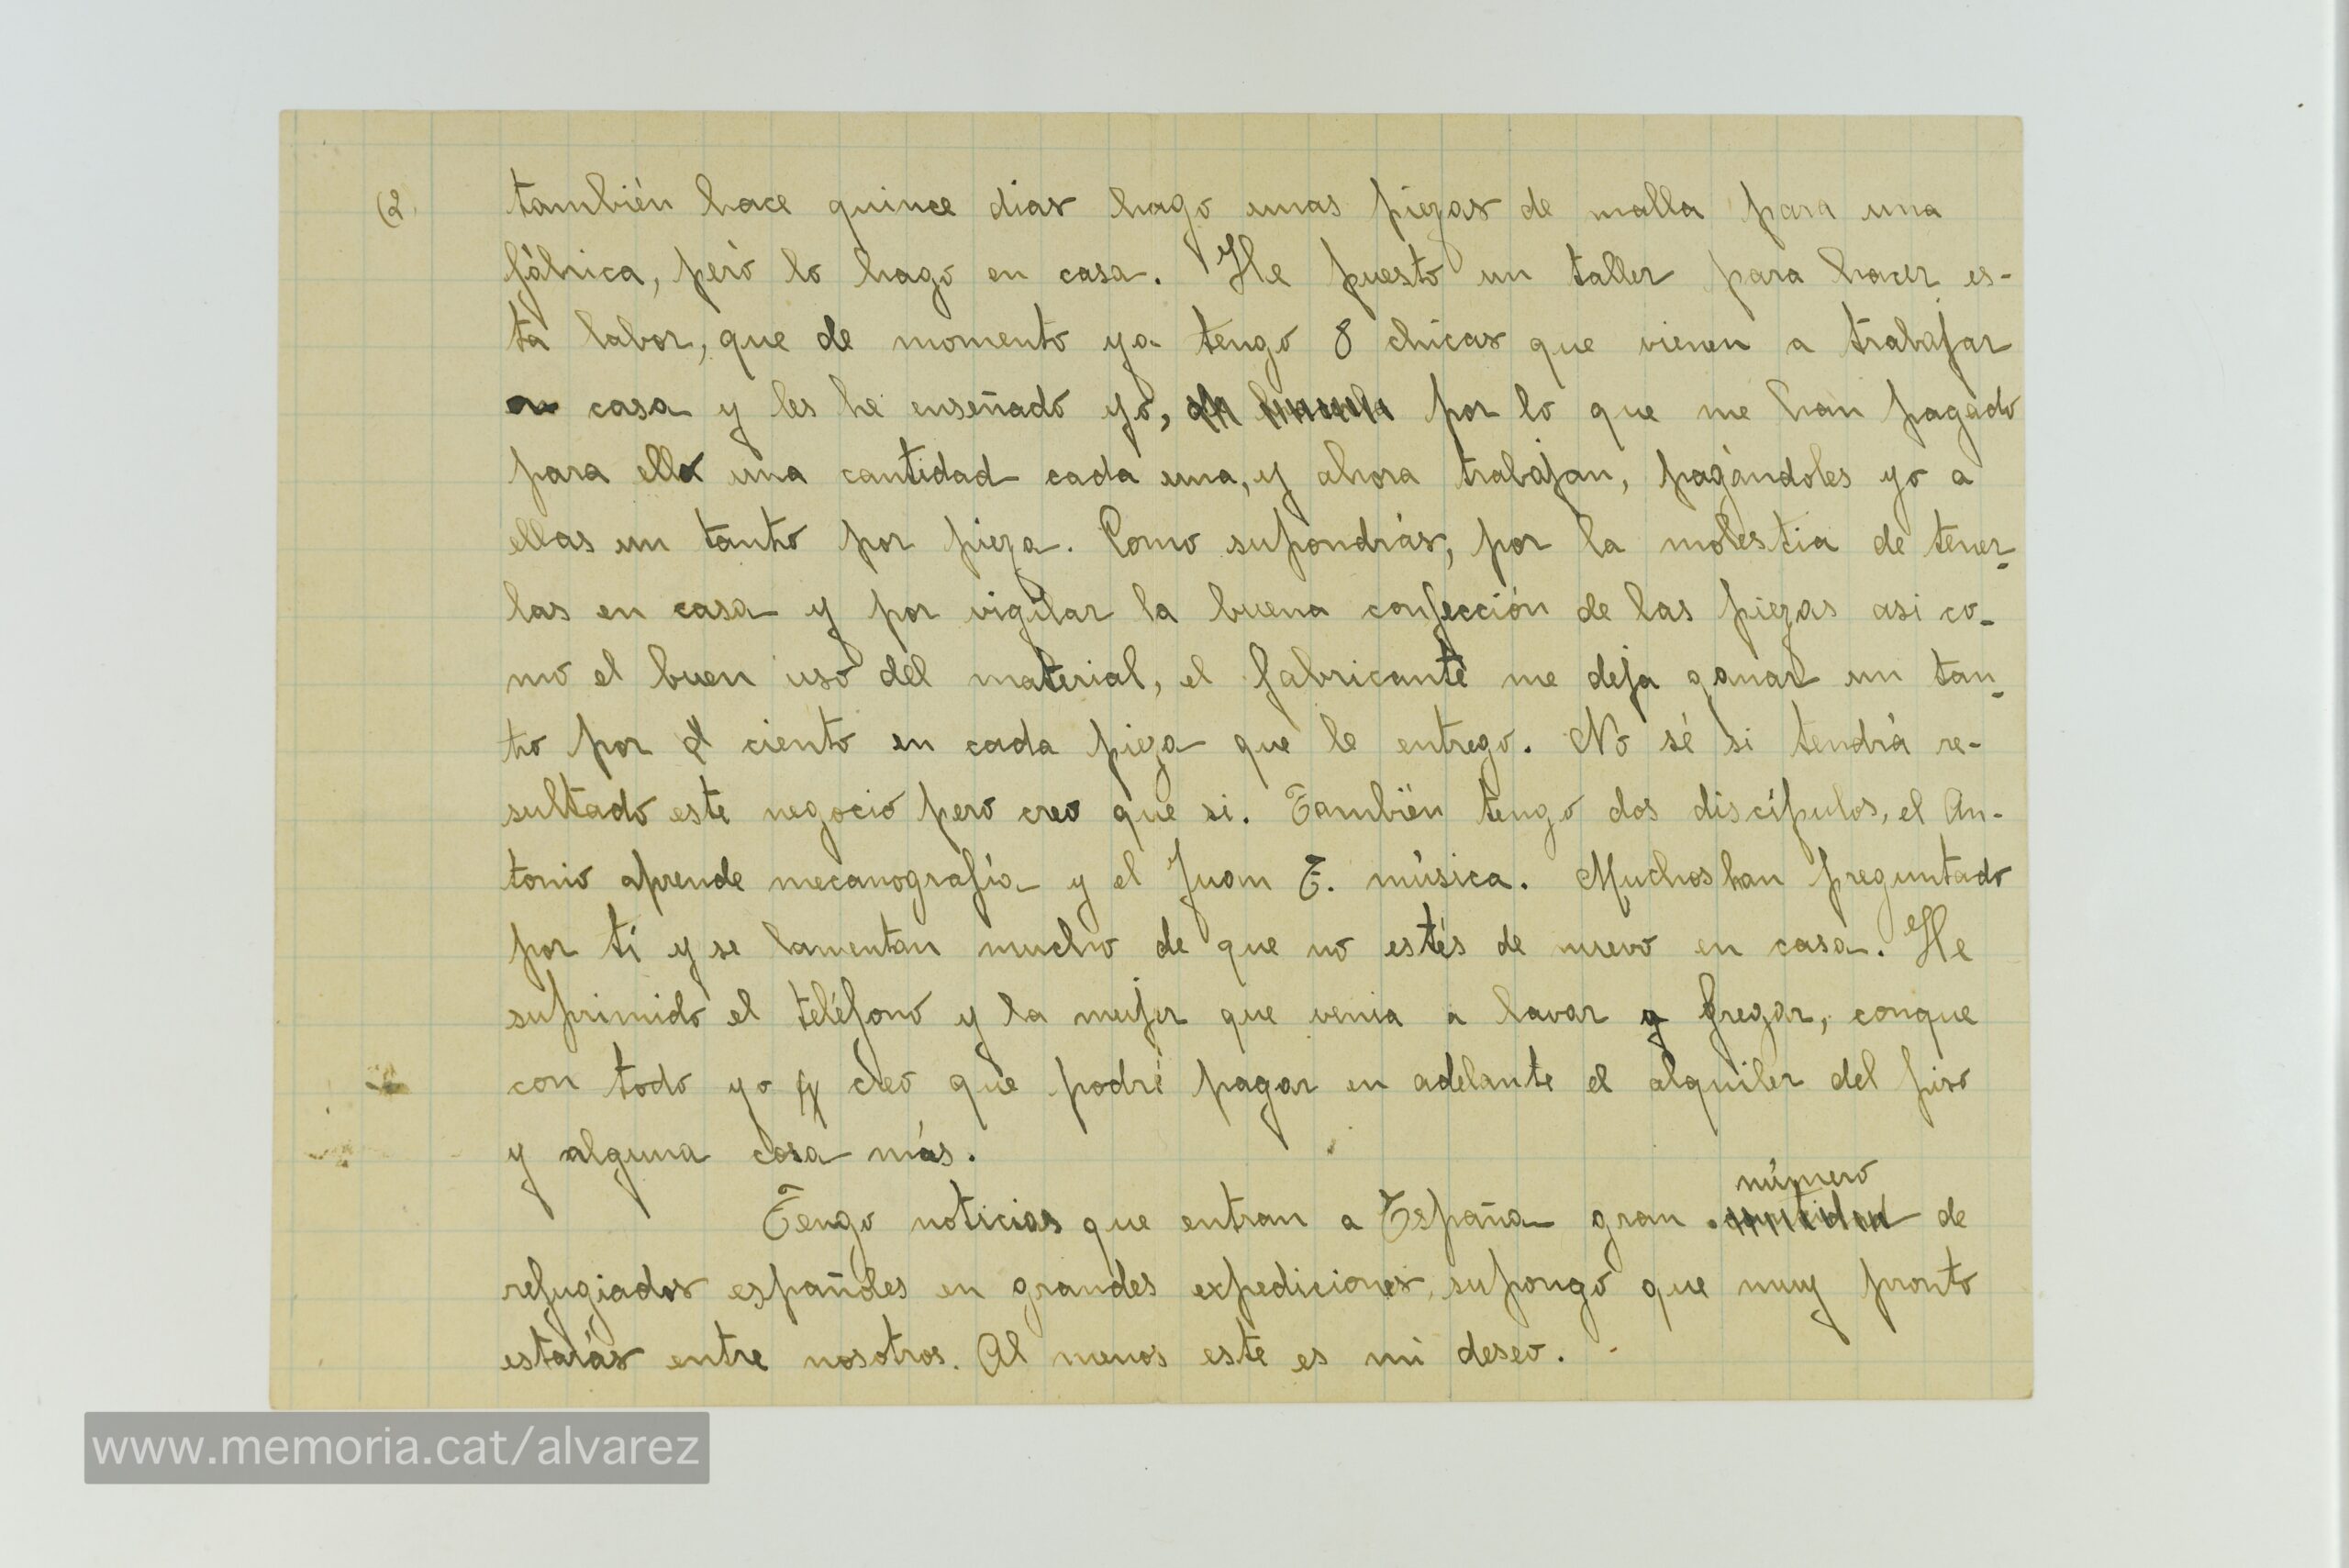 (2)
también hace quince dias hago unas piezas de malla para una
fábrica, peró lo hago en casa. He puesto un taller para hacer es-
ta labor, que de momento ya tengo 8 chicas que vienen a trabajar
casa y les he enseñado yo, por lo que me han pagado
para ello una cantidad cada una, y ahora trabajan, pagándoles yo a
ellas un tanto por pieza. Como supondrás, por la molestia de tener-
las en casa y por vigilar la buena confección de las piezas asi co-
mo el buen uso del material, el fabricante me deja ganar un tan-
to por ciento en cada pieza que le entrego. No sé si tendrá re-
sultado este negocio pero creo que si. También tengo dos discípulos, el An-
tonio aprende mecanografía y el Juan T. música. Muchos han preguntado
por ti y se lamentan mucho de que no estés de nuevo en casa. He
suprimido el teléfono y la mujer que venia a lavar y fregar, conque
con todo yo creo que podré pagar en adelante el alquiler del piso
y alguna cosa más.
número
Tengo noticias que entran a España gran cantidad de
refugiados españoles en grandes expediciones, supongo que muy pronto
estarás entre nosotros. Al menos este es mi deseo.
www.memoria.cat/alvarez